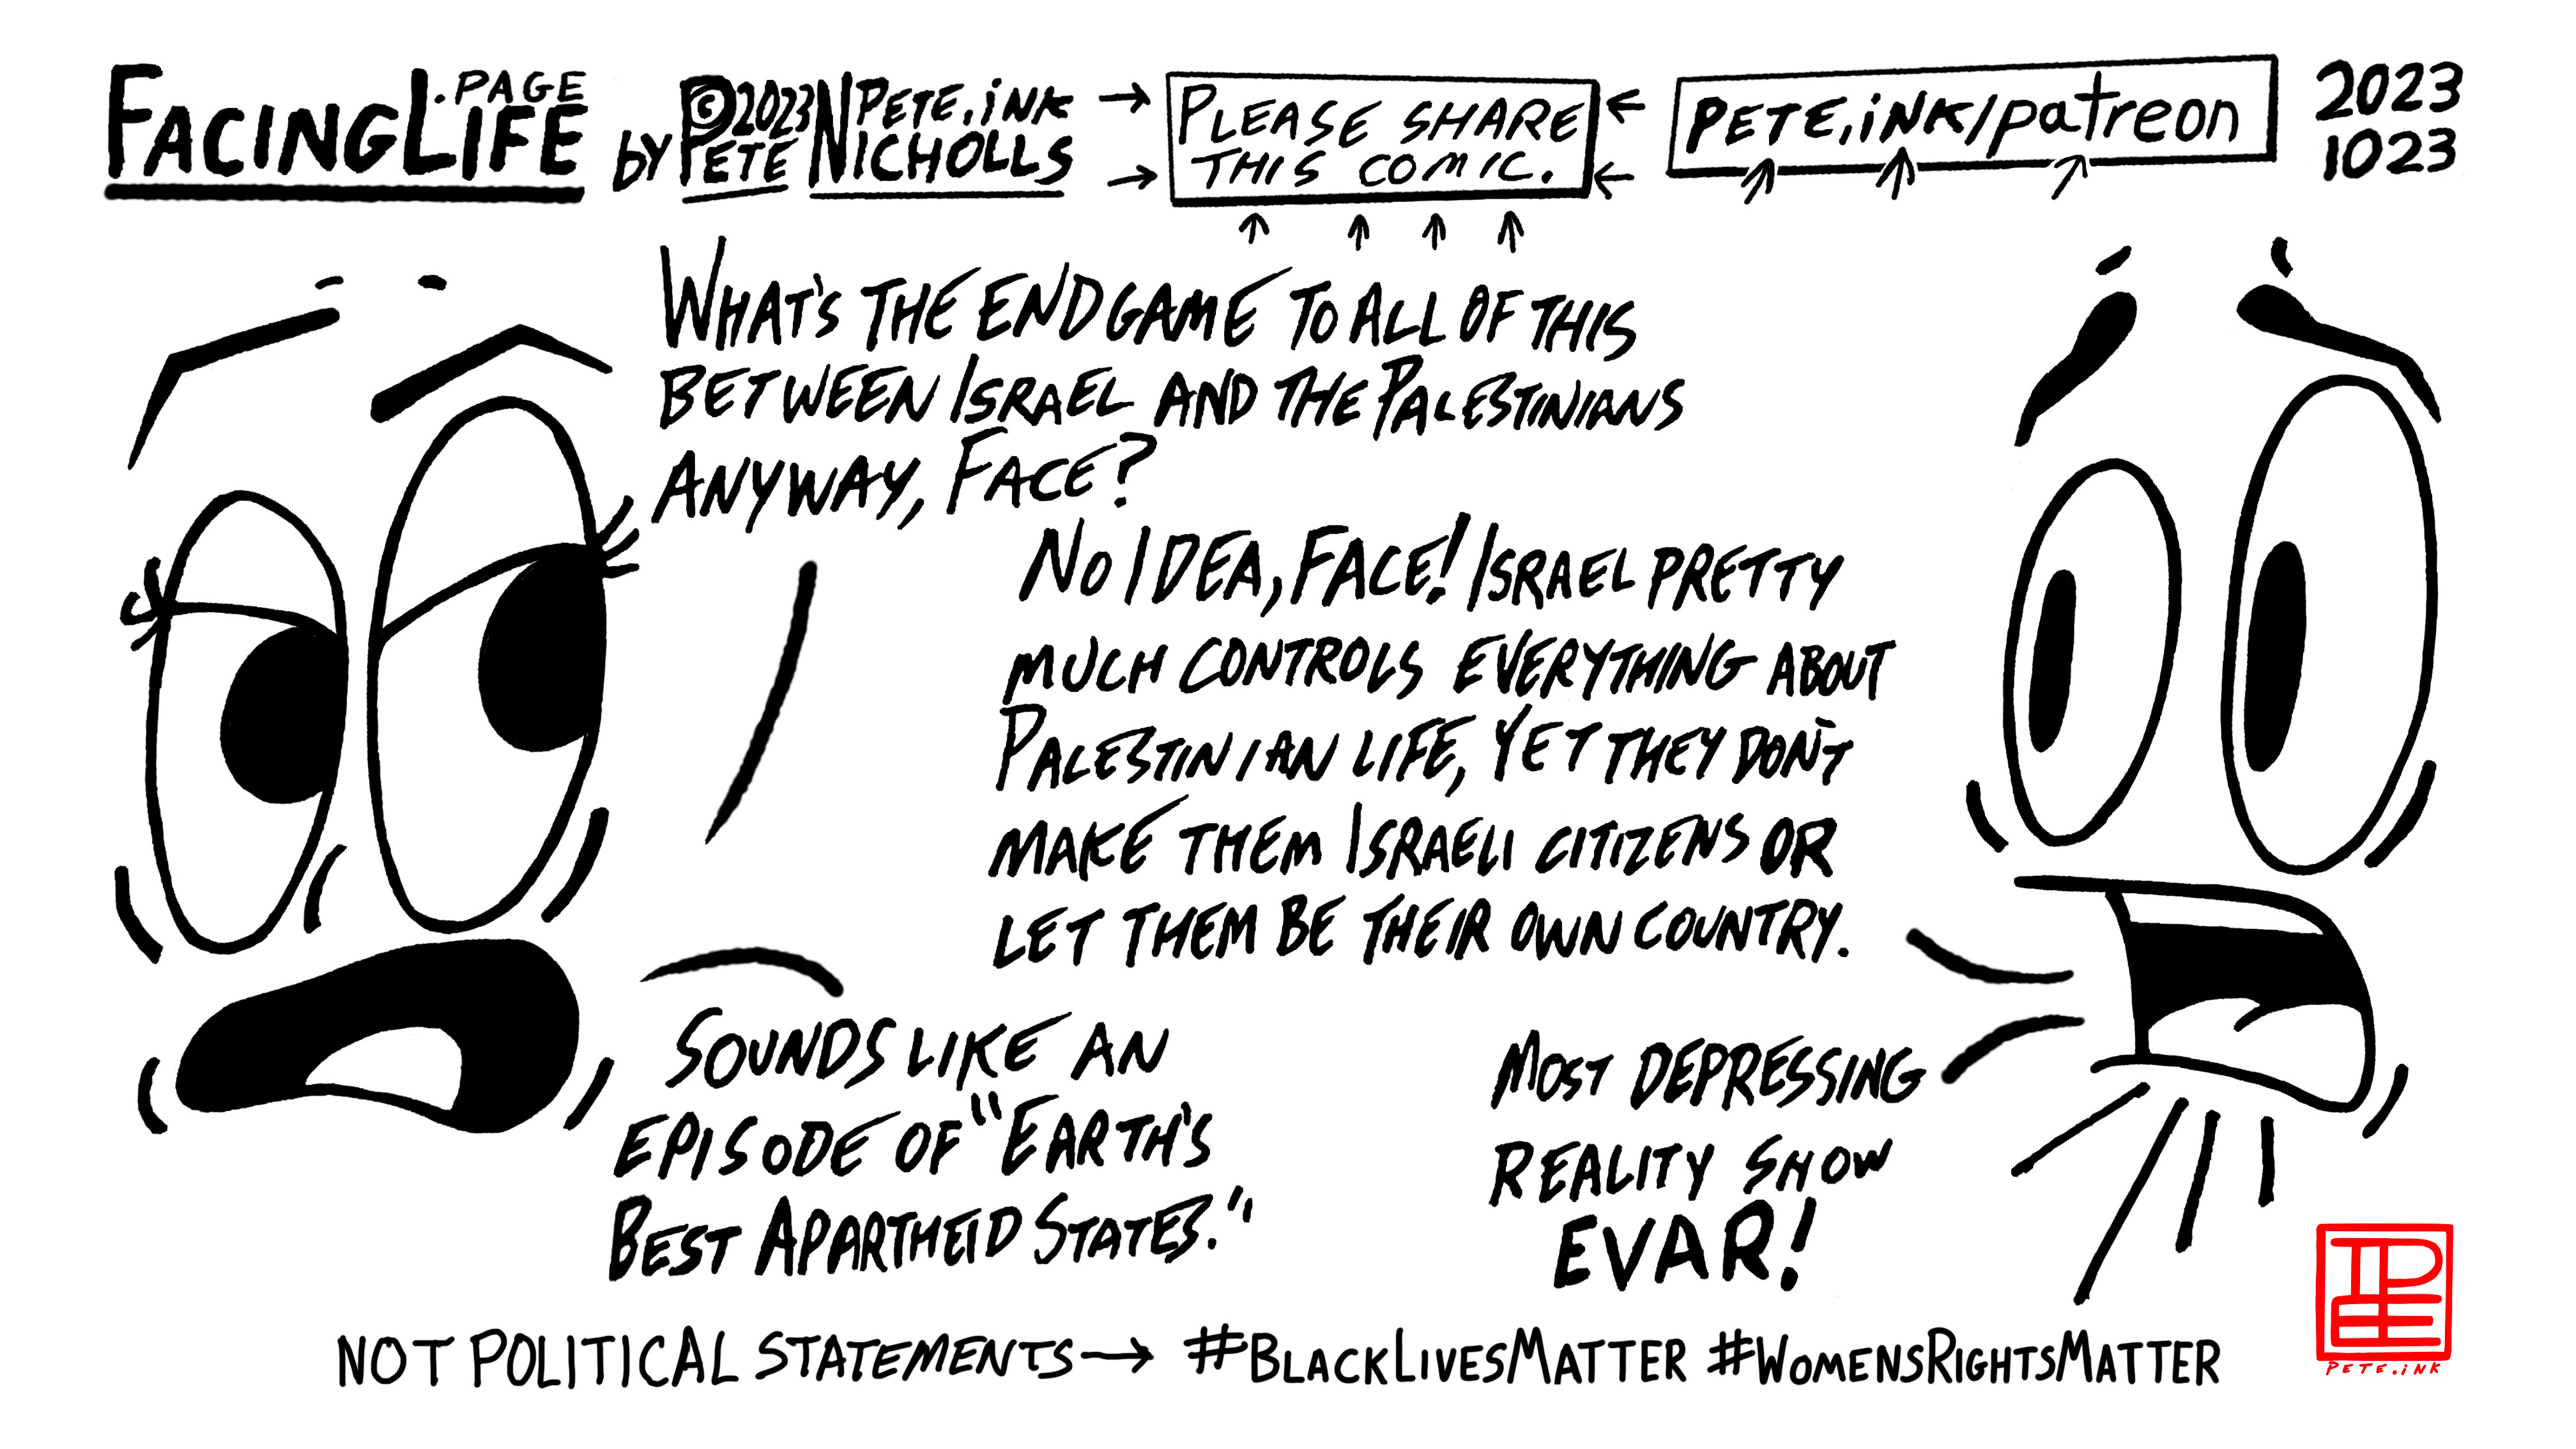 FACINGLIFE.PAGE
BY PETE NICHOLLS
©2023 PETE.iNK
PLEASE SHARE
THIS COMIC.
PETE.iNK/patreon
2023
1023
WHAT'S THE ENDGAME TO ALL OF THIS
BETWEEN ISRAEL AND THE PALESTINIANS
ANYWAY, FACE?
NO IDEA, FACE! ISRAEL PRETTY
MUCH CONTROLS EVERYTHING ABOUT
PALESTINIAN LIFE, YET THEY DON'T
MAKE THEM ISRAELI CITIZENS OR
LET THEM BE THEIR OWN COUNTRY.
SOUNDS LIKE AN
EPISODE OF "EARTH'S
BEST APARTHEID STATES."
MOST DEPRESSING
REALITY SHOW
EVAR!
NOT POLITICAL STATEMENTS → #BLACKLIVESMATTER #WOMENSRIGHTSMATTER
PETE
PETE.iNK